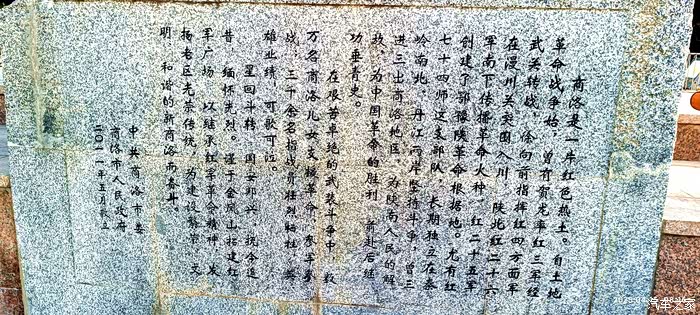 商洛是一片红色热土。自土地
革命战争始，曾有贺龙率红三军经
武关转战，徐向前指挥红四方面军
在漫川关突围入川，陕北红二十六
军南下传播革命火种，红二十五军
创建了鄂豫陕革命根据地。尤有红
七十四师这支部队，长期独立在秦
岭南北、丹江两岸坚持斗争，曾三
进三出商洛地区，为陕南人民的解
放、为中国革命的胜利，前赴后继
功垂青史。
在艰苦卓绝的武装斗争中，数
万名商洛儿女支援革命、参军参
战，三千余名指战员壮烈牺牲，英
雄业绩，可歌可泣。
星回斗转，国安邦兴，抚今追
昔，缅怀先烈。谨于金凤山拓建红
军广场，以继承红军革命精神，发
扬老区光荣传统，为建设繁荣、文
明、和谐的新商洛而奋斗。
中共商洛市委
商洛市人民政府
二〇一一年五月敬立
汽车之家